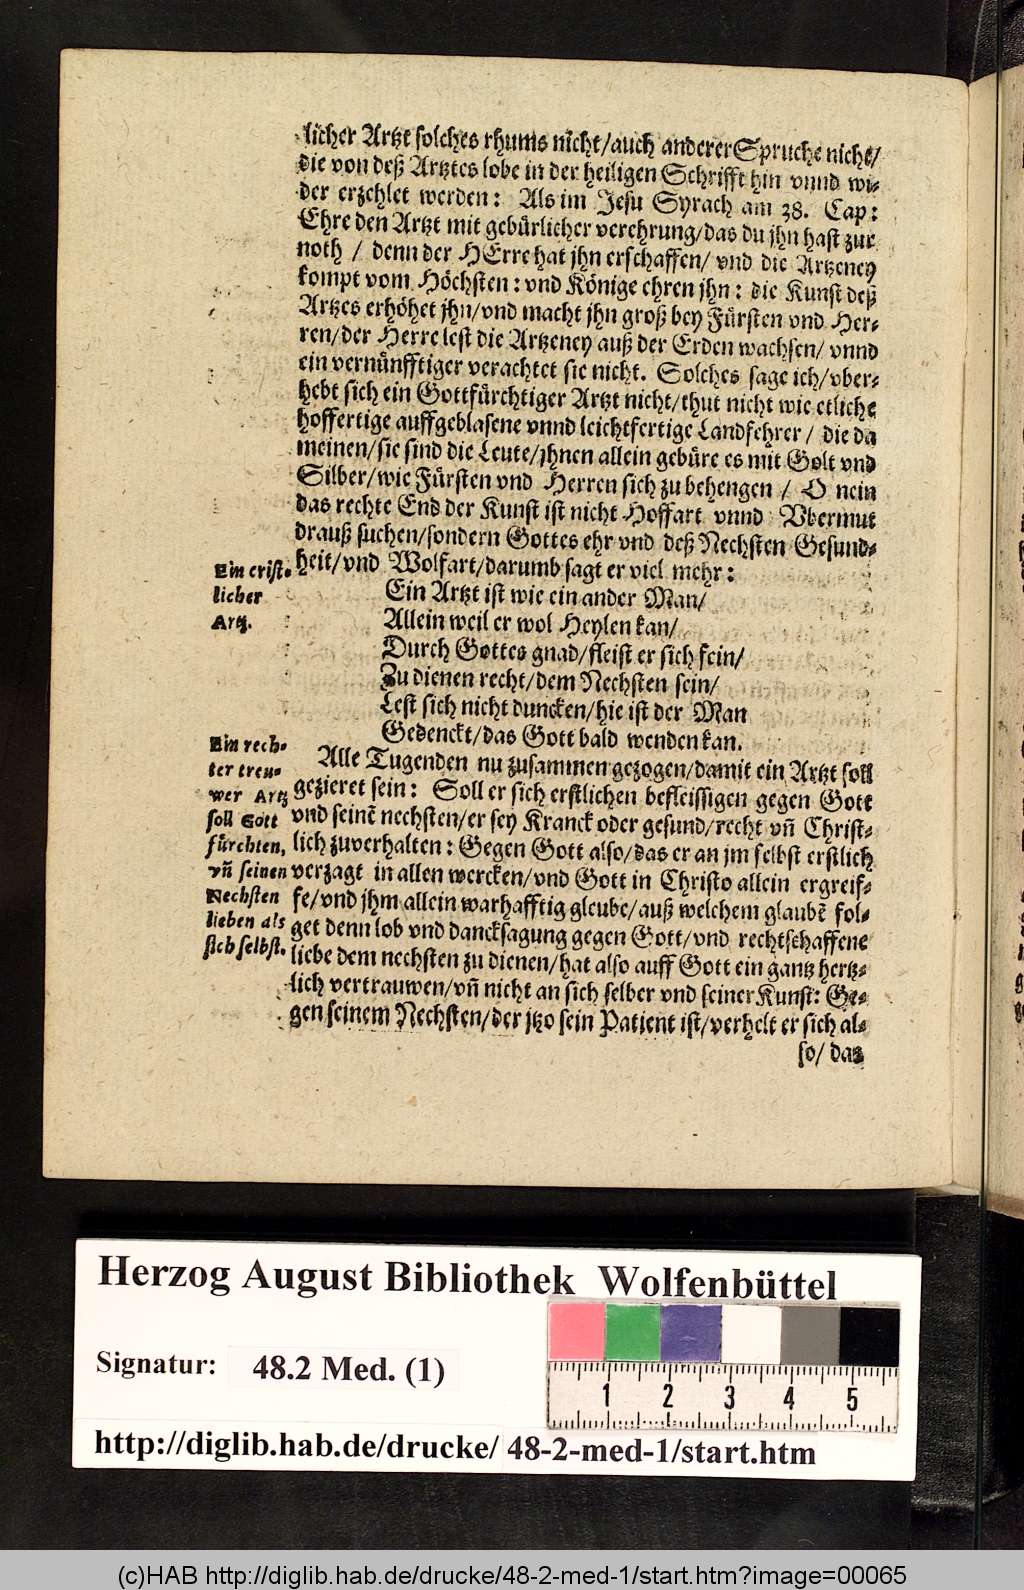 licher Artzt solches rhums nicht/auch anderer Spruche nicht/
die von deß Artztes lobe in der heiligen Schrifft hin vnnd wi-
der erzehlet werden: Als im Jesu Syrach am 38. Cap:
Ehre den Artzt mit gebürlicher verehrung/das du jhn hast zur
noth / denn der HErre hat jhn erschaffen/ vnd die Artzeney
kompt vom Höchsten: vnd Könige ehren jhn: die Kunst deß
Artzes erhöhet jhn/vnd macht jhn groß bey Fürsten vnd Her-
ren/der Herre lest die Artzeney auß der Erden wachsen/ vnnd
ein vernünfftiger verachtet sie nicht. Solches sage ich/vber-
hebt sich ein Gottfürchtiger Artzt nicht/thut nicht wie etliche
hoffertige auffgeblasene vnnd leichtfertige Landfehrer / die da
meinen/sie sind die Leute/jhnen allein gebüre es mit Golt vnd
Silber/wie Fürsten vnd Herren sich zu behengen / O nein
das rechte End der Kunst ist nicht Hoffart vnnd Vbermut
drauß suchen/sondern Gottes ehr vnd deß Nechsten Gesund-
heit/vnd Wolfart/darumb sagt er viel mehr:
Ein crist-
licher
Artz.
Ein Artzt ist wie ein ander Man/
Allein weil er wol Heylen kan/
Durch Gottes gnad/fleist er sich fein/
Zu dienen recht/dem Nechsten sein/
Lest sich nicht duncken/hie ist der Man
Gedenckt/das Gott bald wenden kan.
Ein rech-
ter treu-
wer Artz
soll Gott
fürchten,
vñ seinen
Nechsten
lieben als
sich selbst.
Alle Tugenden nu zusammen gezogen/damit ein Artzt soll
gezieret sein: Soll er sich erstlichen befleissigen gegen Gott
vnd seinē nechsten/er sey Kranck oder gesund/recht vñ Christ-
lich zuverhalten: Gegen Gott also/das er an jm selbst erstlich
verzagt in allen wercken/vnd Gott in Christo allein ergreif-
fe/vnd jhm allein warhafftig gleube/auß welchem glaubē fol-
get denn lob vnd dancksagung gegen Gott/vnd rechtschaffene
liebe dem nechsten zu dienen/hat also auff Gott ein gantz hertz-
lich vertrauwen/vñ nicht an sich selber vnd seiner Kunst: Ge-
gen seinem Nechsten/der jtzo sein Patient ist/verhelt er sich al-
so/ das
Herzog August Bibliothek Wolfenbüttel
Signatur: 48.2 Med. (1)
1 2 3 4 5
http://diglib.hab.de/drucke/ 48-2-med-1/start.htm
(c)HAB http://diglib.hab.de/drucke/48-2-med-1/start.htm?image=00065